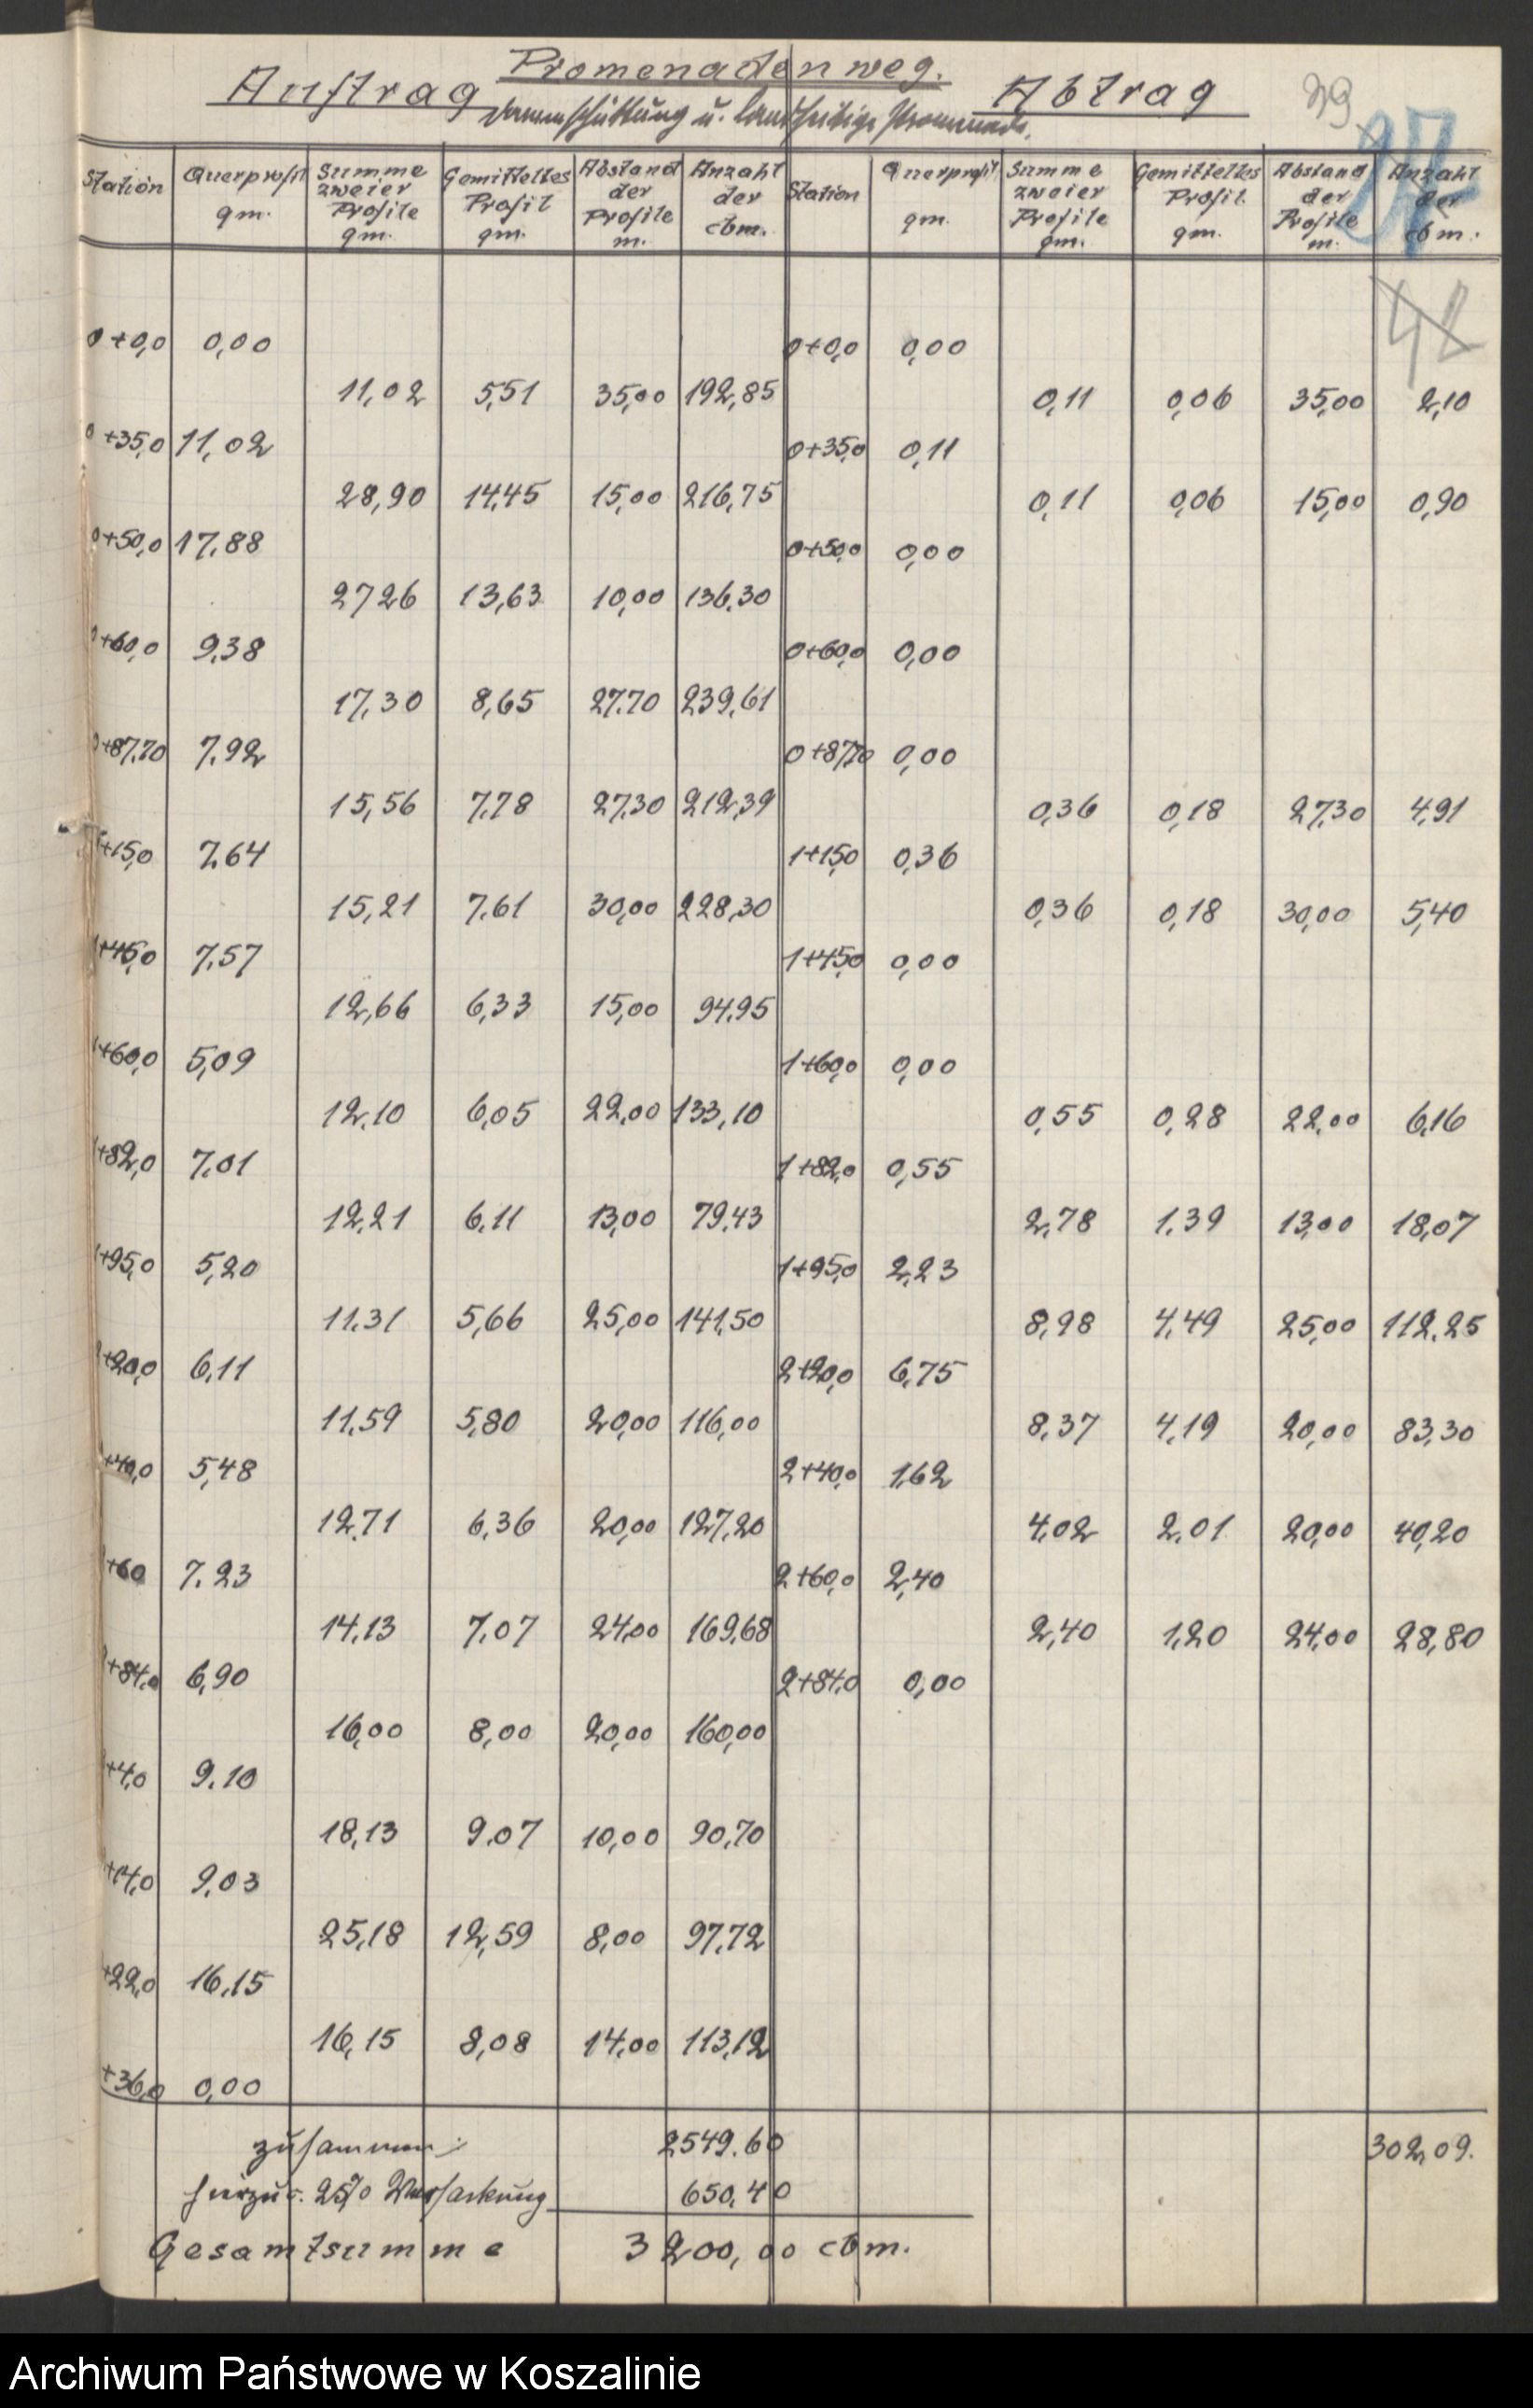 Promenadenweg.
Auftrag Abtrag 29
Dammschüttung u. landseitige Promenade.
37
Station Querprofil qm. Summe zweier Profile qm. Gemitteltes Profil qm. Abstand der Profile m. Anzahl der cbm. Station Querprofil qm. Summe zweier Profile qm. Gemitteltes Profil qm. Abstand der Profile m. Anzahl der cbm.
42
0+0,0 0,00 0+0,0 0,00
11,02 5,51 35,00 192,85 0,11 0,06 35,00 2,10
0+35,0 11,02 0+35,0 0,11
28,90 14,45 15,00 216,75 0,11 0,06 15,00 0,90
0+50,0 17,88 0+50,0 0,00
27,26 13,63 10,00 136,30
0+60,0 9,38 0+60,0 0,00
17,30 8,65 27,70 239,61
0+87,70 7,92 0+87,70 0,00
15,56 7,78 27,30 212,39 0,36 0,18 27,30 4,91
1+15,0 7,64 1+15,0 0,36
15,21 7,61 30,00 228,30 0,36 0,18 30,00 5,40
1+45,0 7,57 1+45,0 0,00
12,66 6,33 15,00 94,95
1+60,0 5,09 1+60,0 0,00
12,10 6,05 22,00 133,10 0,55 0,28 22,00 6,16
1+82,0 7,01 1+82,0 0,55
12,21 6,11 13,00 79,43 2,78 1,39 13,00 18,07
1+95,0 5,20 1+95,0 2,23
11,31 5,66 25,00 141,50 8,98 4,49 25,00 112,25
+20,0 6,11 2+20,0 6,75
11,59 5,80 20,00 116,00 8,37 4,19 20,00 83,30
+40,0 5,48 2+40,0 1,62
12,71 6,36 20,00 127,20 4,02 2,01 20,00 40,20
+60 7,23 2+60,0 2,40
14,13 7,07 24,00 169,68 2,40 1,20 24,00 28,80
+84,0 6,90 2+84,0 0,00
16,00 8,00 20,00 160,00
+4,0 9,10
18,13 9,07 10,00 90,70
+14,0 9,03
25,18 12,59 8,00 97,72
+22,0 16,15
16,15 8,08 14,00 113,12
+36,0 0,00
zusammen: 2549.60 302,09.
hierzu c. 25% Versackung 650,40
Gesamtsumme 3200,00 cbm.
Archiwum Państwowe w Koszalinie